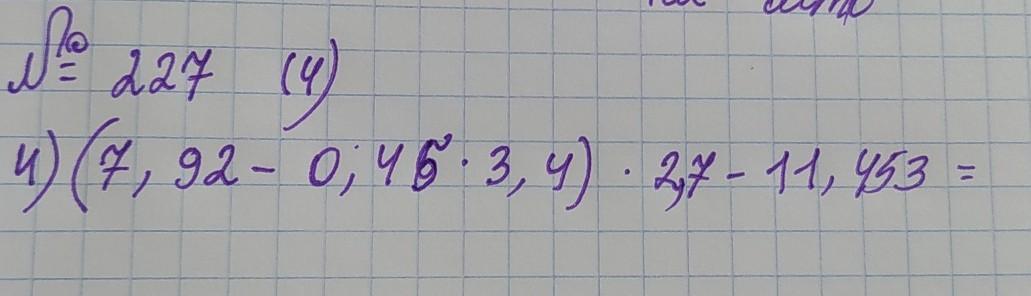 № 227 (4)
4) (7,92 - 0,45 · 3,4) · 2,7 - 11,453 =